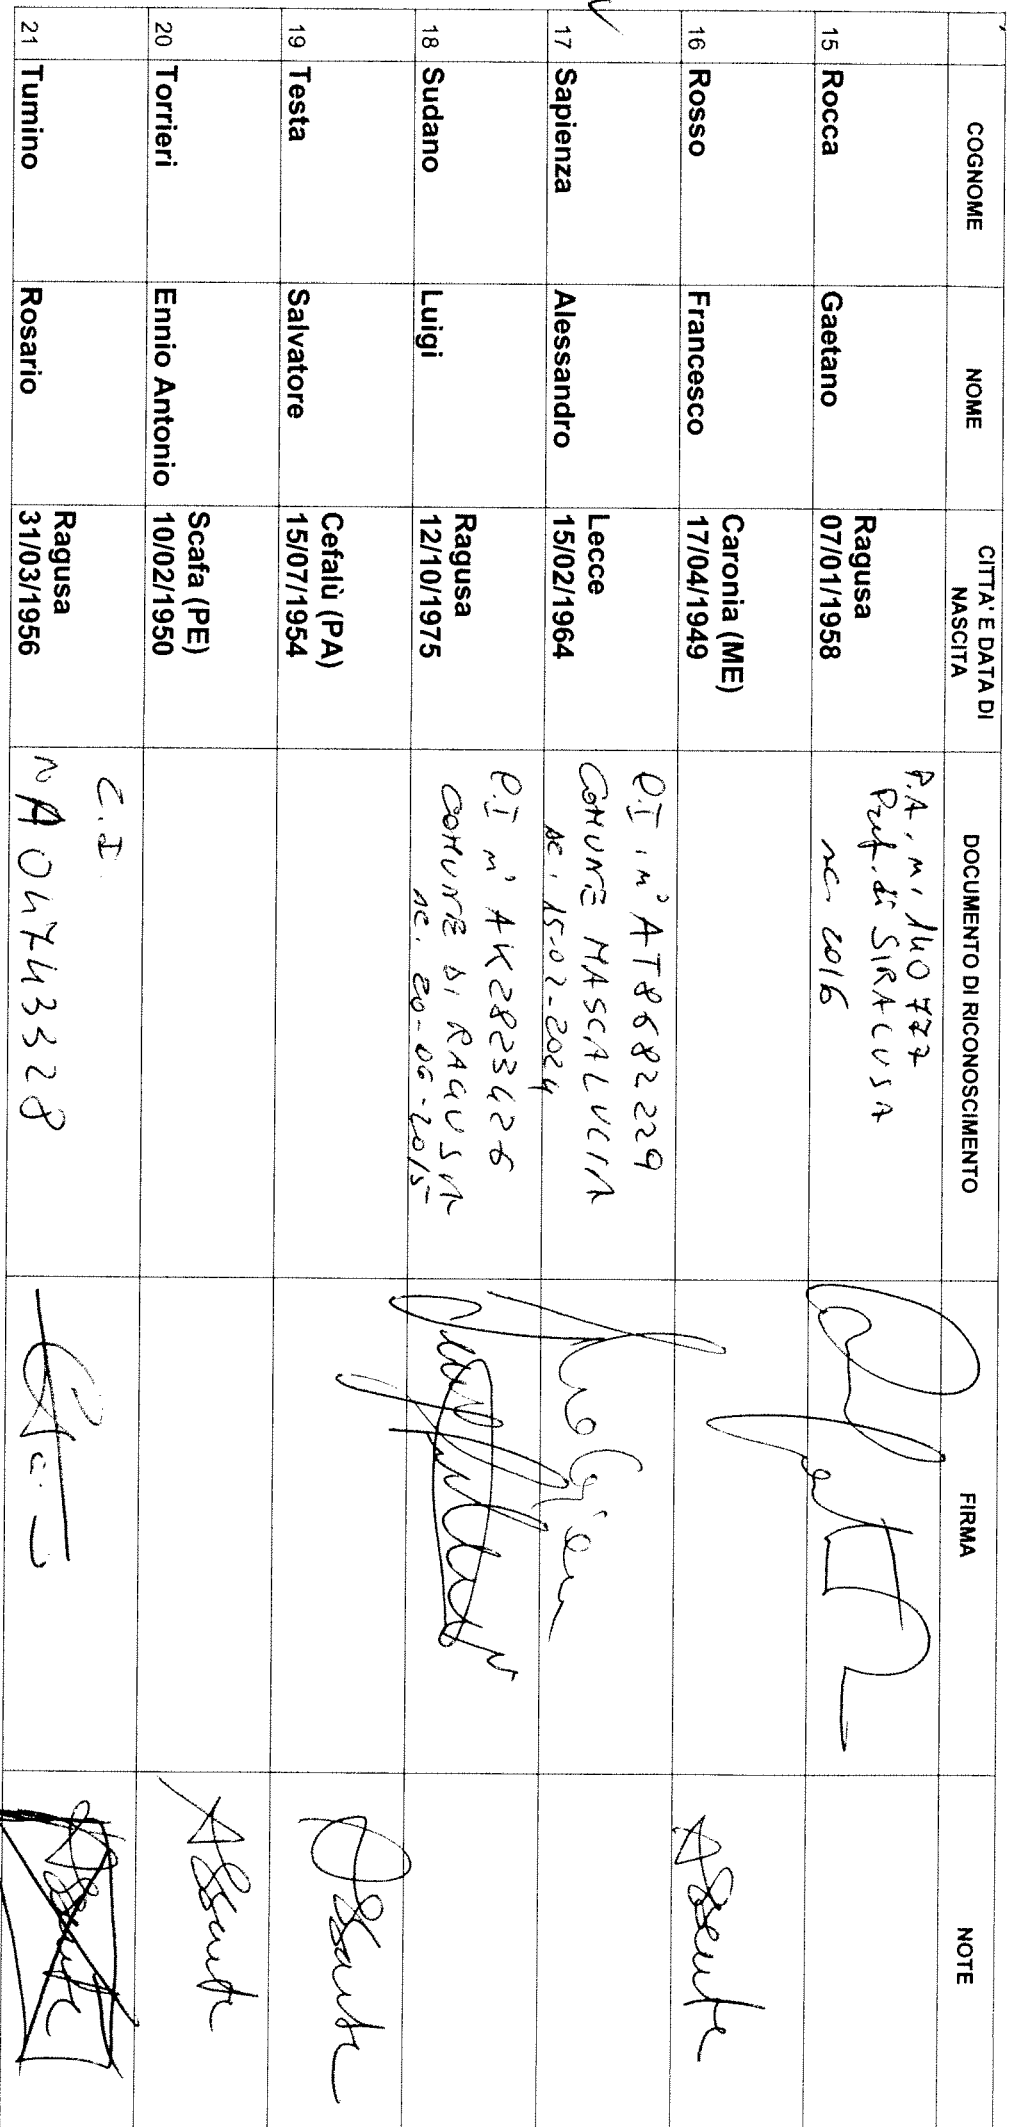 COGNOME
NOME
CITTA' E DATA DI
NASCITA
DOCUMENTO DI RICONOSCIMENTO
FIRMA
NOTE
15 Rocca
Gaetano
Ragusa
07/01/1958
P.A. n. 140777
Pref. di SIRACUSA
sc. 2016
16 Rosso
Francesco
Caronia (ME)
17/04/1949
Assente
17 Sapienza
Alessandro
Lecce
15/02/1964
C.I. n° AT8682229
COMUNE MASCALUCIA
sc. 15-02-2024
18 Sudano
Luigi
Ragusa
12/10/1975
C.I n° AK2823426
COMUNE DI RAGUSA
sc. 20-06-2015
19 Testa
Salvatore
Cefalù (PA)
15/07/1954
Assente
20 Torrieri
Ennio Antonio
Scafa (PE)
10/02/1950
Assente
21 Tumino
Rosario
Ragusa
31/03/1956
C.I.
N A04743328
Assente